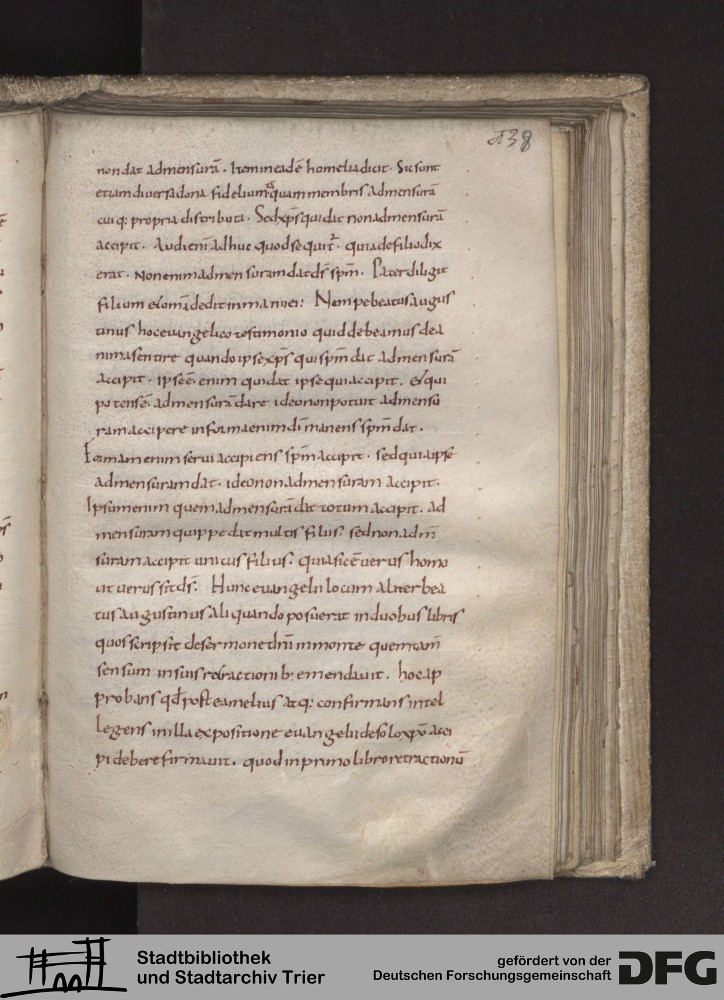 138
non dat admensurā. Item in eadē homelia dicit. Sic sunt
etiam diversa dona fidelium quam membris admensurā
cuiq: propria distributa. Sed xp̄s qui dat non admensurā
accipit. Audiem̄ adhuc quod sequit̄. quia de filio dix
erat. Non enim admensuram dat ds̄ spm̄. Pater diligit
filium et omā dedit in manu ei: Nempe beatus augus
tinus hoc evangelico testimonio quid debeamus de a
nima sentire quando ipse xp̄s qui spm̄ dat admensurā
accipit. ipse ē enim qui dat ipse qui accipit. et qui
potens ē admensurā dare ideo non potuit admensu
ram accipere in forma enim dī manens spm̄ dat.
Formam enim servi accipiens spm̄ accipit. sed quia ipse
admensuram dat. ideo non admensuram accipit.
Ipsum enim quem admensurā dat totum accipit. ad
mensuram quippe dat multis filiis. sed non adm̄
suram accipit unicus filius. quia sic ē verus homo
ut verus sit ds̄. Hunc evangelii locum aliter bea
tus augustinus aliquando posuerat in duobus libris
quos scripsit de sermone dn̄i in monte quem tam̄
sensum in suis retractionib: emendavit. hoc ap
probans qd̄ post ea melius atq: confirmans intel
legens in illa expositione evangelii de solo xpō acci
pi debere firmavit. quod in primo libro retractionū
Stadtbibliothek
und Stadtarchiv Trier
gefördert von der
Deutschen Forschungsgemeinschaft
DFG